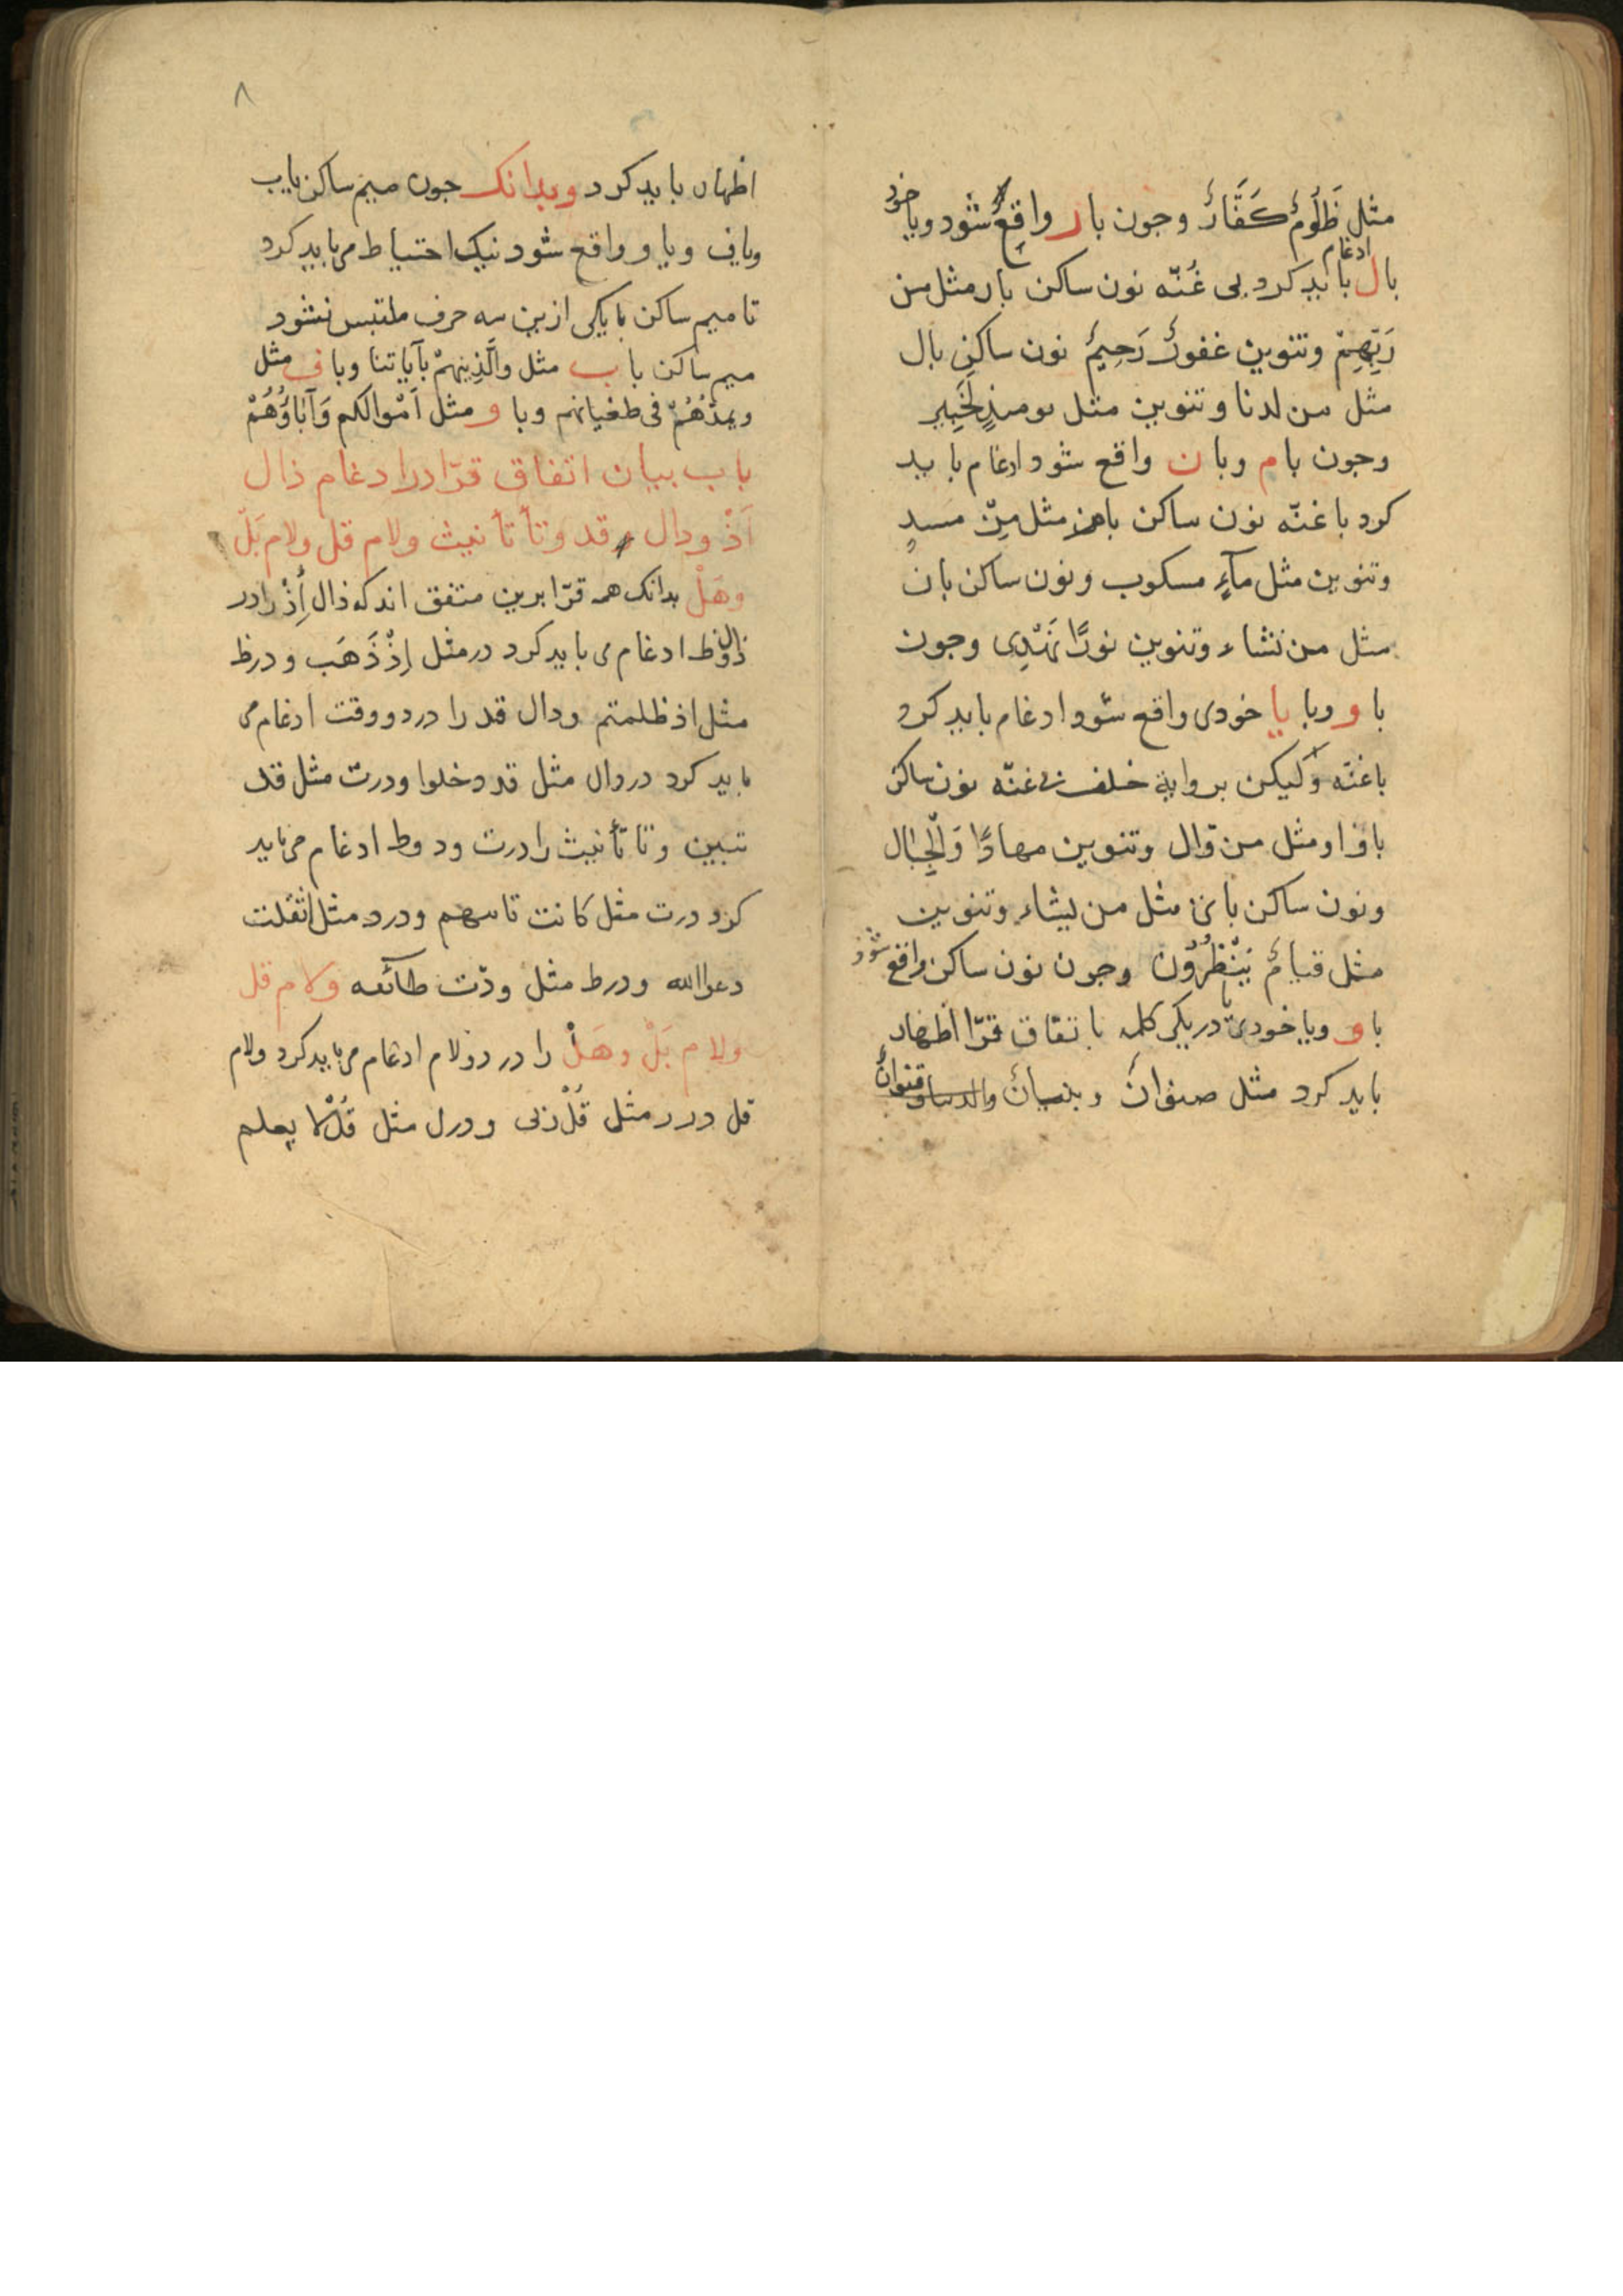 مثل ظَلُومٌ كَفَّارٌ وجون با ر واقِعْ شود ويا خود
بال ادغام بايد كرد بى غُنّه نون ساكن بار مثل من
رَبِّهِمْ وتنوين غفورٌ رَحِيمٌ نون ساكن بال
مثل من لدنا وتنوين مثل يومىٔذٍ لَخَبِير
وجون با م وبا ن واقع شود ادغام بايد
كرد با غنّه نون ساكن بام مثل مِنْ مسدٍ
وتنوين مثل مآءٍ مسكوب ونون ساكن بان
مثل من نشاء وتنوين نورًا نَهْدِى وجون
با و وبا يا خودى واقع شود ادغام بايد كرد
باغنّه وليكن برواية خلف بى غنّه نون ساكن
باواو مثل من وّال وتنوين مهادًا وَالْجِبَال
ونون ساكن باى مثل من يشاء وتنوين
مثل قيامٌ يَنْظُرُون وجون نون ساكن واقع شود
با و ويا خودى با دريكى كلمه باتفاق قرّا اظهار
بايد كرد مثل صنوانٌ وبنيانٌ والدنيا وقنوانٌ
٨
اظهار بايد كرد وبدانك جون ميم ساكن بابِ
وباف وباو واقع شود نيك احتياط مى بايد كرد
تا ميم ساكن بايكى ازين سه حرف ملتبس نشود
ميم ساكن با ب مثل وَالَّذِينَهُمْ بآياتنا وبا ف مثل
ويمدُّهُمْ فى طغيانهم وبا و مثل اَمْوالكم وَآباؤُهُمْ
باب بيان اتفاق قرّا درادغام ذال
اَذْ ودال قد وتأ تأنيث ولام قل ولام بَلْ
وهَلْ بدانك همه قرّا برين متفق اند كه ذال اِذْ رادر
ذال وظ ادغام مى بايد كرد درمثل اِذْ ذَهَب ودرظ
مثل اذ ظلمتم ودال قد را دردو وقت ادغام مى
بايد كرد دردال مثل قد دخلوا ودرت مثل قد
تبين وتا تأنيث را درت ود وط ادغام مى بايد
كرد درت مثل كانت تاتيهم ودرد مثل اثقلت
دعوا الله ودرط مثل ودّت طآئفه ولام قل
ولام بَلْ وهَلْ را در رولام ادغام مى بايد كرد ولام
قل در ر مثل قُلْ ربى ودرل مثل قُلْ لا يعلم